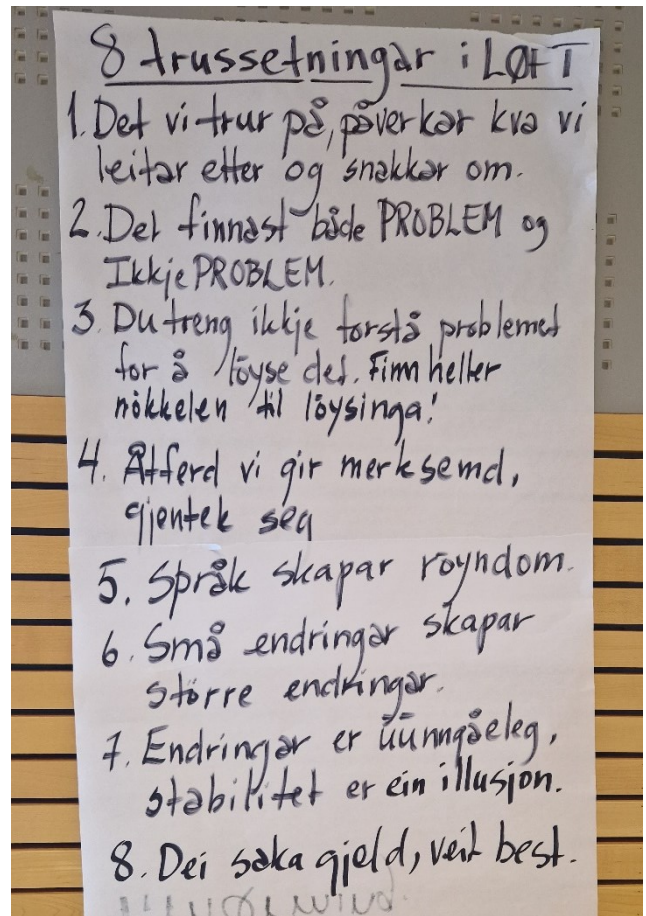 8 trussetningar i LØFT
1. Det vi trur på, påverkar kva vi
leitar etter og snakkar om.
2. Det finnast både PROBLEM og
Ikkje PROBLEM.
3. Du treng ikkje forstå problemet
for å löyse det. Finn heller
nökkelen til löysinga!
4. Åtferd vi gir merksemd,
gjentek seg
5. Språk skapar röyndom.
6. Små endringar skapar
större endringar.
7. Endringar er uunngåeleg,
stabilitet er ein illusjon.
8. Dei saka gjeld, veit best.